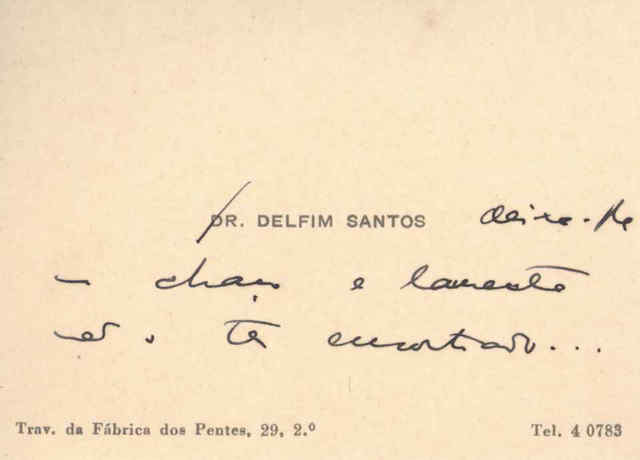 DR. DELFIM SANTOS deixa-lhe
um abraço e lamenta
não o ter encontrado...
Trav. da Fábrica dos Pentes, 29, 2.º Tel. 4 0783